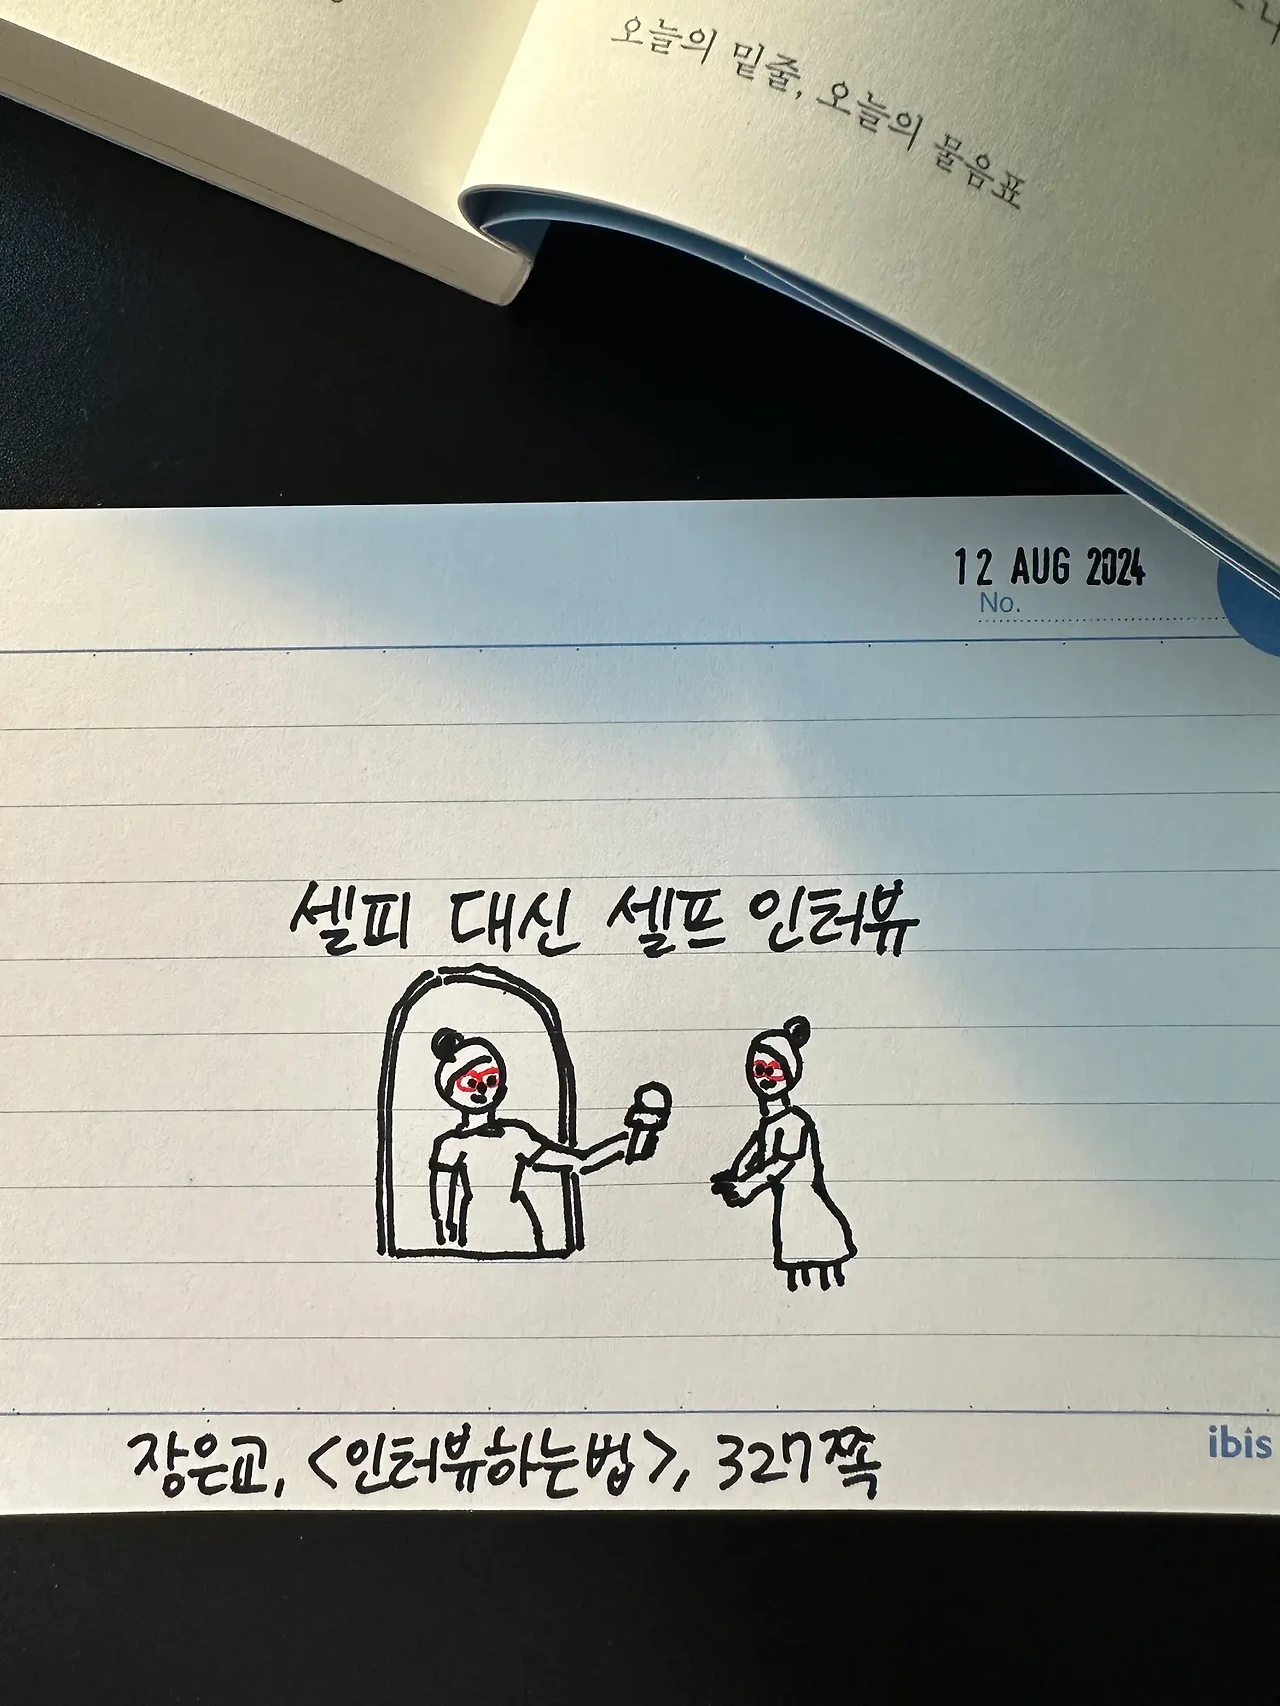 오늘의 밑줄, 오늘의 물음표
12 AUG 2024
No.
셀피 대신 셀프 인터뷰
장은교, <인터뷰하는법>, 327쪽
ibis